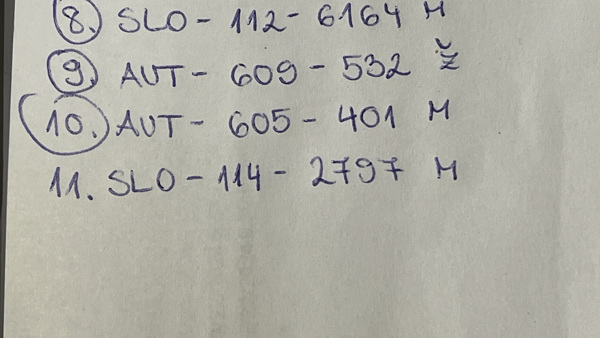 8. SLO - 112 - 6164 M
9. AUT - 609 - 532 Ž
10. AUT - 605 - 401 M
11. SLO - 114 - 2797 M